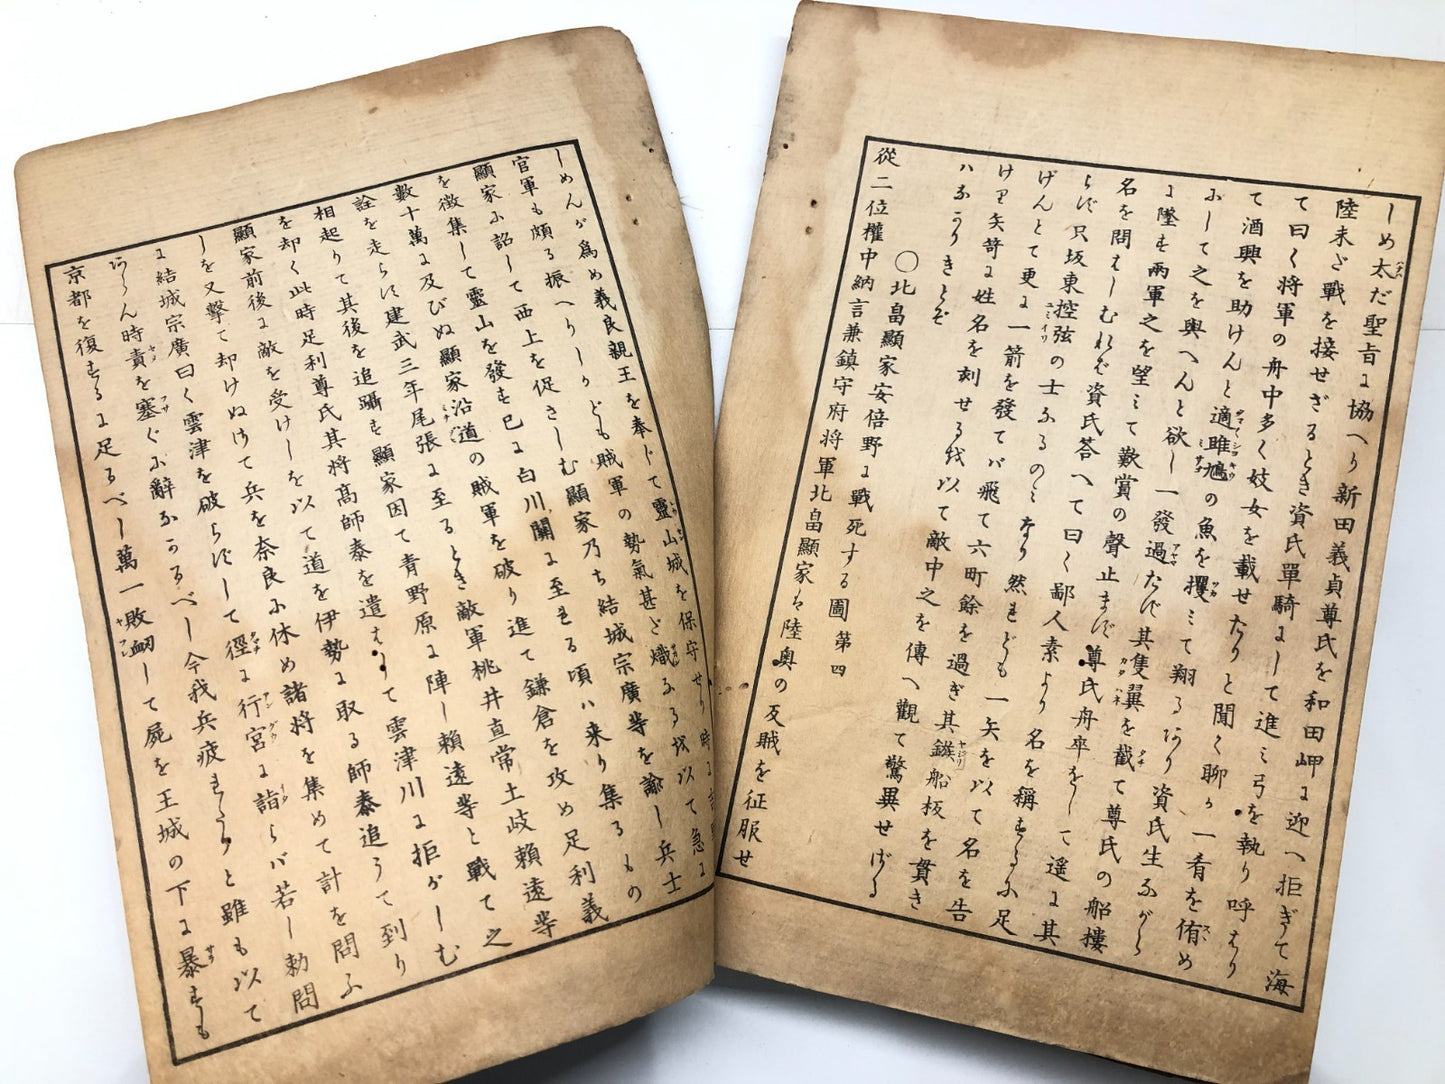 しめ太だ聖旨に協へり新田義貞尊氏を和田岬に迎へ拒ぎて海
陸未だ戰を接せざるとき資氏單騎にして進み弓を執り呼はり
て曰く将軍の舟中多く妓女を載せたりと聞く聊か一肴を侑め
て酒興を助けんと適雎鳩の魚を攫みて翔るあり資氏生ながら
にして之を與へんと欲し一發過たず其隻翼を截て尊氏の船樓
に墜す兩軍之を望みて歎賞の聲止まず尊氏舟卒をして遥に其
名を問はしむれば資氏答へて曰く鄙人素より名を稱するに足
らず只坂東控弦の士なるのみなり然れども一矢を以て名を告
げんとて更に一箭を發てバ飛て六町餘を過ぎ其鏃船板を貫き
けり矢笴に姓名を刻せるを以て敵中之を傳へ觀て驚異せざる
ハなかりきとぞ
〇北畠顯家安倍野に戰死する圖第四
從二位權中納言兼鎮守府将軍北畠顯家は陸奥の反賊を征服せ
しめんが爲め義良親王を奉じて靈山城を保守せり時に
官軍も頗る振へりしかども賊軍の勢氣甚だ熾なるを以て急に
顯家に詔して西上を促さしむ顯家乃ち結城宗廣等を諭し兵士
を徴集して靈山を發す已に白川關に至れる頃ハ来り集るもの
數十萬に及びぬ顯家沿道の賊軍を破り進て鎌倉を攻め足利義
詮を走らす建武三年尾張に至るとき敵軍桃井直常土岐賴遠等
相起りて其後を追躡す顯家因て青野原に陣し賴遠等と戰て之
を却く此時足利尊氏其将髙師泰を遣はして雲津川に拒がしむ
顯家前後に敵を受けしを以て道を伊勢に取る師泰追うて到り
しを又撃て却けぬけて兵を奈良に休め諸将を集めて計を問ふ
に結城宗廣曰く雲津を破らずして徑に行宮に詣らバ若し勅問
あらん時責を塞ぐに辭なかるべし今我兵疲れたりと雖も以て
京都を復するに足るべし萬一敗衂して屍を王城の下に暴すも